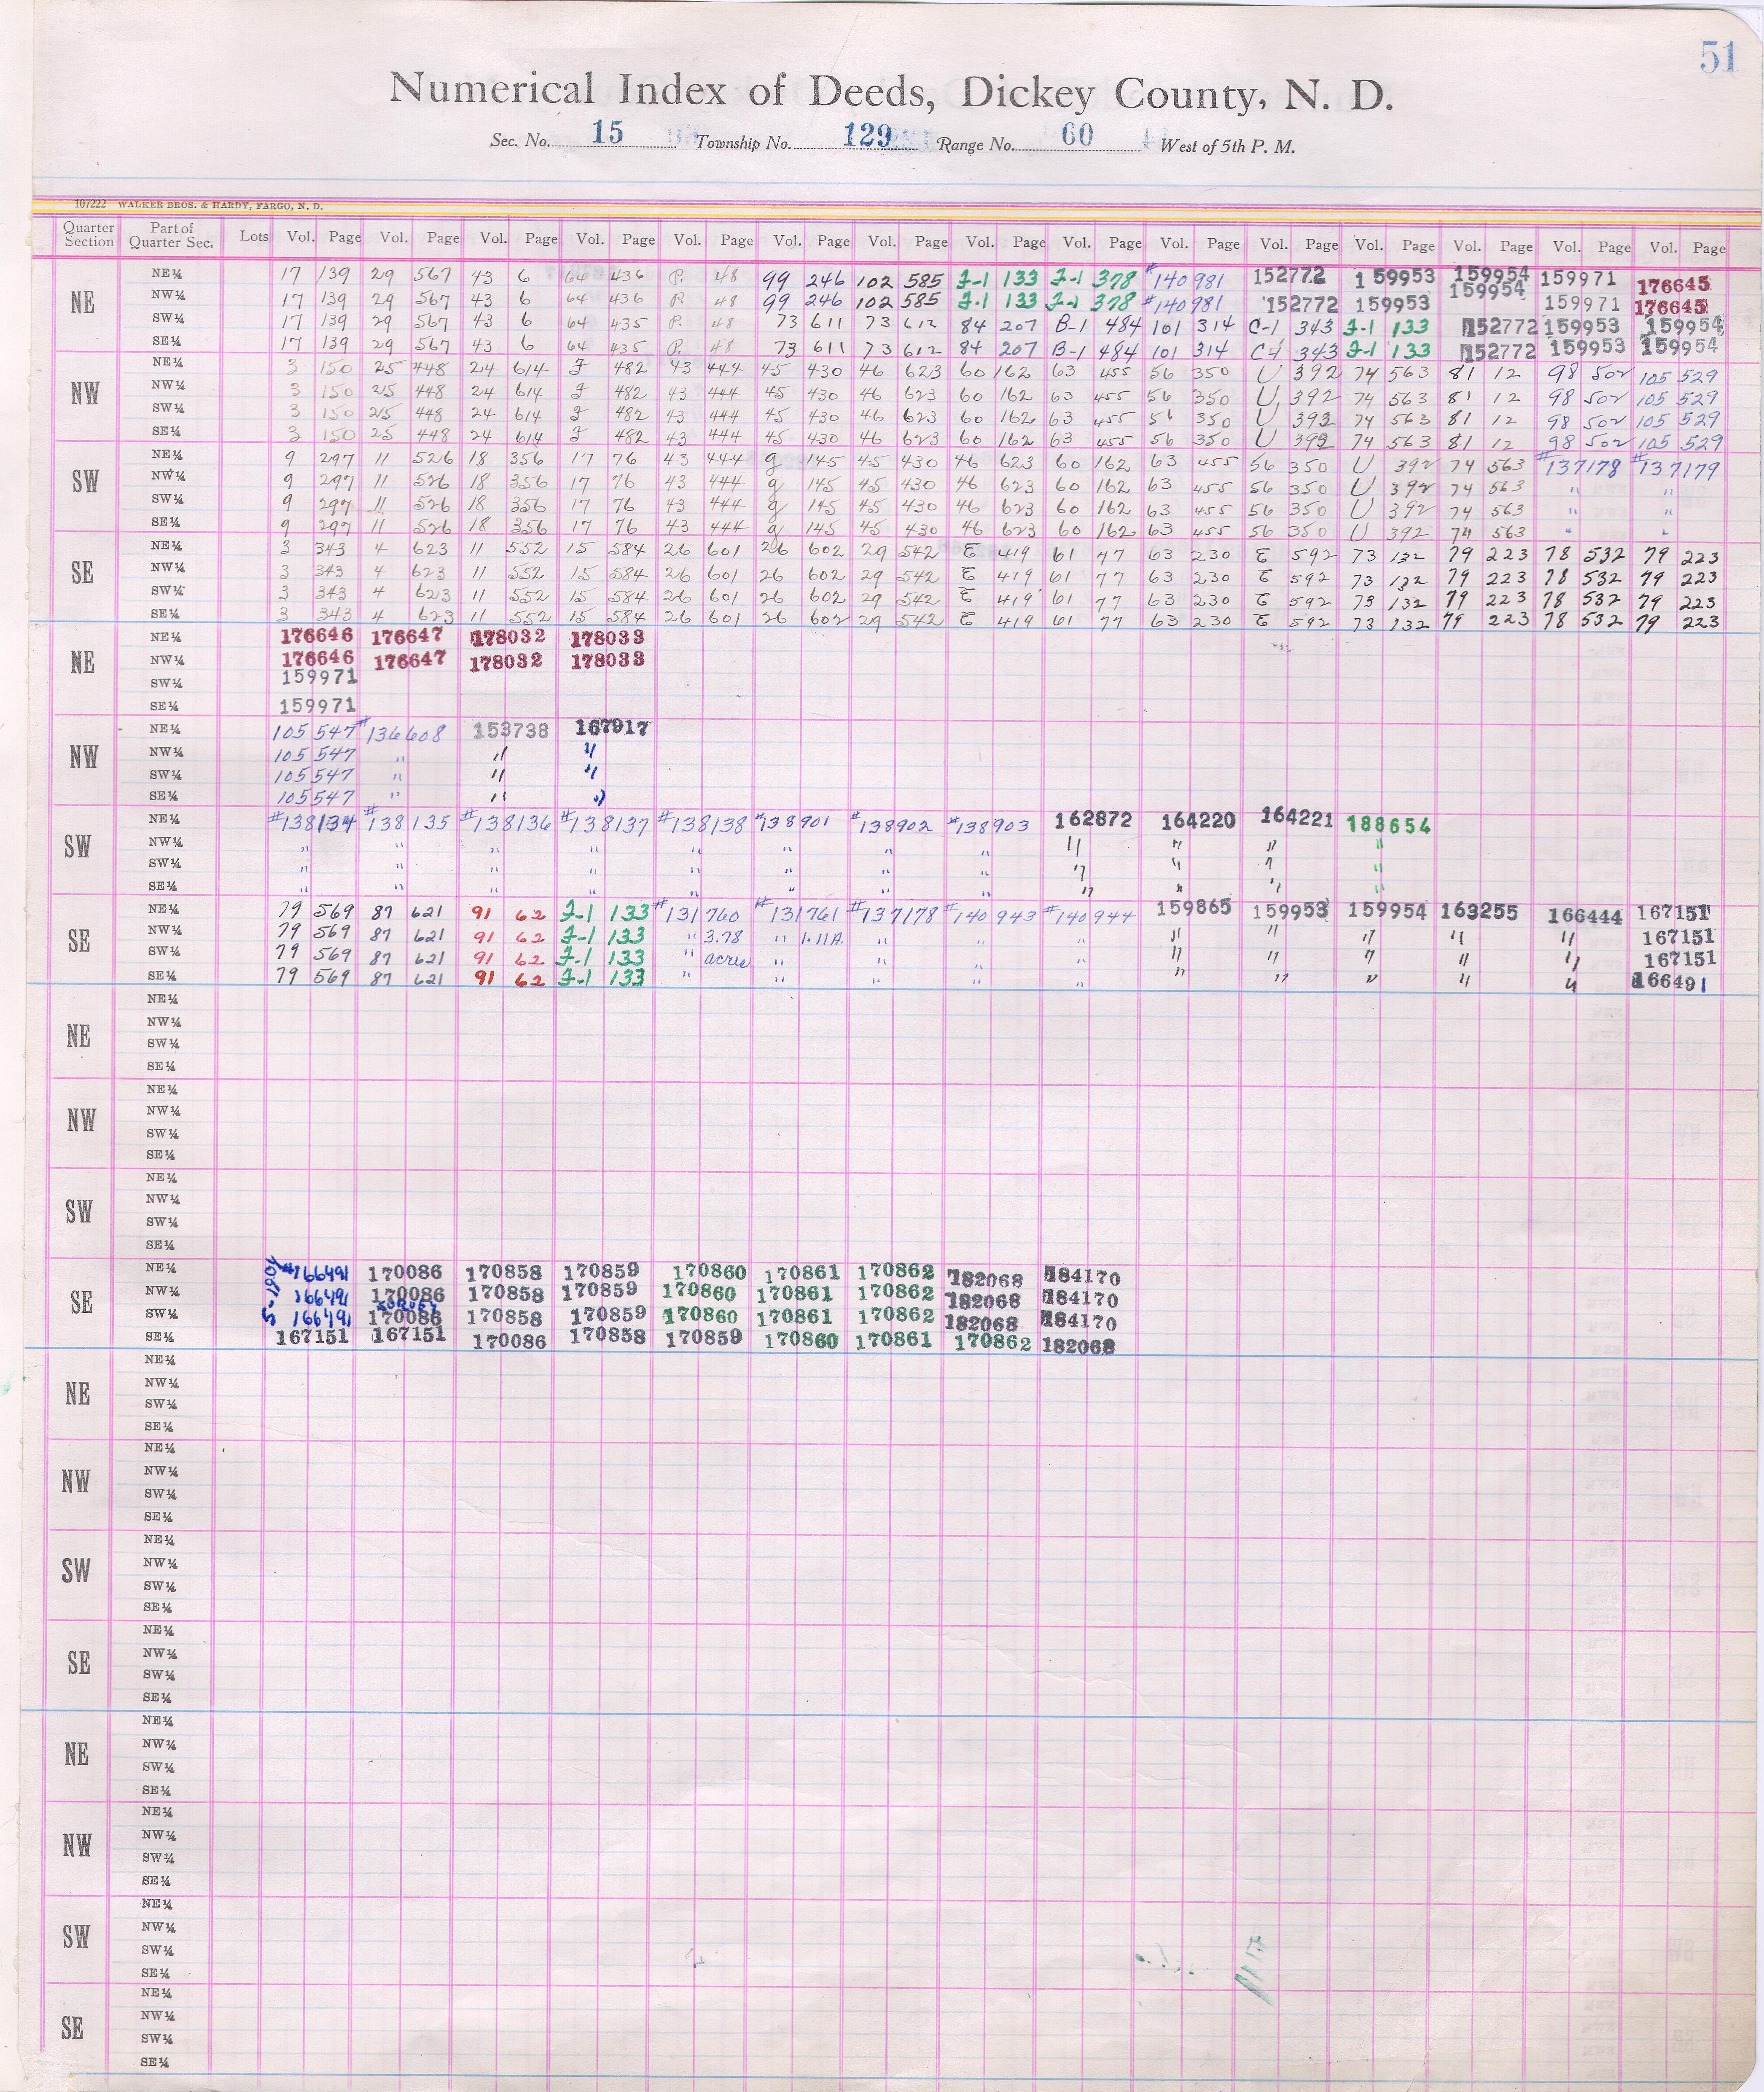 51
Numerical Index of Deeds, Dickey County, N. D.
Sec. No. 15 Township No. 129 Range No. 60 West of 5th P. M.
107222 WALKER BROS. & HARDY, FARGO, N. D.
Quarter Section Part of Quarter Sec. Lots Vol. Page Vol. Page Vol. Page Vol. Page Vol. Page Vol. Page Vol. Page Vol. Page Vol. Page Vol. Page Vol. Page Vol. Page Vol. Page Vol. Page Vol. Page
NE NE¼ 17 139 29 567 43 6 64 436 P. 48 99 246 102 585 J-1 133 J-1 378 #140981 152772 159953 159954 159971 176645
NW¼ 17 139 29 567 43 6 64 436 P 48 99 246 102 585 J-1 133 J-1 378 #140981 152772 159953 159954 159971 176645
SW¼ 17 139 29 567 43 6 64 435 P. 48 73 611 73 612 84 207 B-1 484 101 314 C-1 343 J-1 133 152772 159953 159954
SE¼ 17 139 29 567 43 6 64 435 P. 48 73 611 73 612 84 207 B-1 484 101 314 C-1 343 J-1 133 152772 159953 159954
NW NE¼ 3 150 25 448 24 614 J 482 43 444 45 430 46 623 60 162 63 455 56 350 U 392 74 563 81 12 98 502 105 529
NW¼ 3 150 25 448 24 614 J 482 43 444 45 430 46 623 60 162 63 455 56 350 U 392 74 563 81 12 98 502 105 529
SW¼ 3 150 25 448 24 614 J 482 43 444 45 430 46 623 60 162 63 455 56 350 U 392 74 563 81 12 98 502 105 529
SE¼ 3 150 25 448 24 614 J 482 43 444 45 430 46 623 60 162 63 455 56 350 U 392 74 563 81 12 98 502 105 529
SW NE¼ 9 297 11 526 18 356 17 76 43 444 g 145 45 430 46 623 60 162 63 455 56 350 U 392 74 563 #137178 #137179
NW¼ 9 297 11 526 18 356 17 76 43 444 g 145 45 430 46 623 60 162 63 455 56 350 U 392 74 563 " "
SW¼ 9 297 11 526 18 356 17 76 43 444 g 145 45 430 46 623 60 162 63 455 56 350 U 392 74 563 " "
SE¼ 9 297 11 526 18 356 17 76 43 444 g 145 45 430 46 623 60 162 63 455 56 350 U 392 74 563 " "
SE NE¼ 3 343 4 623 11 552 15 584 26 601 26 602 29 542 E 419 61 77 63 230 E 592 73 132 79 223 78 532 79 223
NW¼ 3 343 4 623 11 552 15 584 26 601 26 602 29 542 E 419 61 77 63 230 E 592 73 132 79 223 78 532 79 223
SW¼ 3 343 4 623 11 552 15 584 26 601 26 602 29 542 E 419 61 77 63 230 E 592 73 132 79 223 78 532 79 223
SE¼ 3 343 4 623 11 552 15 584 26 601 26 602 29 542 E 419 61 77 63 230 E 592 73 132 79 223 78 532 79 223
NE NE¼ 176646 176647 178032 178033
NW¼ 176646 176647 178032 178033
SW¼ 159971
SE¼ 159971
NW NE¼ 105 547 #136608 153738 167917
NW¼ 105 547 " " "
SW¼ 105 547 " " "
SE¼ 105 547 " " "
SW NE¼ #138134 #138135 #138136 #138137 #138138 #138901 #138902 #138903 162872 164220 164221 188654
NW¼ " " " " " " " " " " " "
SW¼ " " " " " " " " " " " "
SE¼ " " " " " " " " " " " "
SE NE¼ 79 569 87 621 91 62 J-1 133 #131760 #131761 #137178 #140943 #140944 159865 159953 159954 163255 166444 167151
NW¼ 79 569 87 621 91 62 J-1 133 " 3.78 " 1.11A. " " " " " " " " 167151
SW¼ 79 569 87 621 91 62 J-1 133 " acres " " " " " " " " " 167151
SE¼ 79 569 87 621 91 62 J-1 133 " " " " " " " " " " 166491
NE NE¼
NW¼
SW¼
SE¼
NW NE¼
NW¼
SW¼
SE¼
SW NE¼
NW¼
SW¼
SE¼
SE NE¼ #166491 170086 170858 170859 170860 170861 170862 182068 184170
NW¼ 166491 170086 170858 170859 170860 170861 170862 182068 184170
SW¼ 166491 170086 170858 170859 170860 170861 170862 182068 184170
SE¼ 167151 167151 170086 170858 170859 170860 170861 170862 182068
NE NE¼
NW¼
SW¼
SE¼
NW NE¼
NW¼
SW¼
SE¼
SW NE¼
NW¼
SW¼
SE¼
SE NE¼
NW¼
SW¼
SE¼
NE NE¼
NW¼
SW¼
SE¼
NW NE¼
NW¼
SW¼
SE¼
SW NE¼
NW¼
SW¼
SE¼
SE NE¼
NW¼
SW¼
SE¼